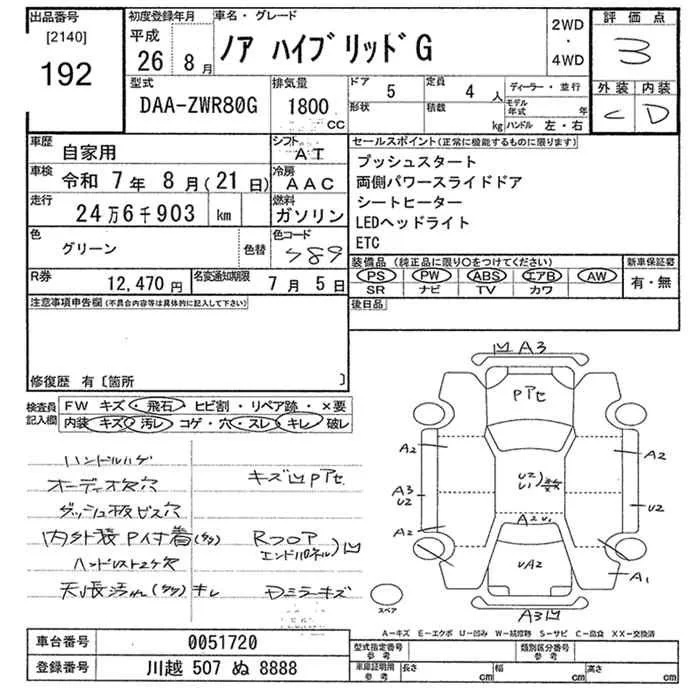 出品番号
[2140]
192
初度登録年月
平成
26 8月
車名・グレード
ノア ハイブリッドG
2WD
・
4WD
評価点
3
外装 内装
C D
型式
DAA-ZWR80G
排気量
1800
CC
ドア 5
定員 4 人
ディーラー・並行
形状
積載
kg
モデル年式 年
ハンドル 左・右
車歴 自家用
シフト AT
車検 令和 7年 8月(21日)
冷房 AAC
走行 24万6千903 km
燃料 ガソリン
色 グリーン
色替
色コード
R券 12,470円
名変通知期限 7月 5日
セールスポイント(正常に機能するものに限ります)
プッシュスタート
両側パワースライドドア
シートヒーター
LEDヘッドライト
ETC
装備品(純正品に限り○をつけてください)
PS PW ABS エアB AW
SR ナビ TV カワ
新車保証書
有・無
後日品
注意事項申告欄(不具合内容等は具体的に記入して下さい)
修復歴 有〔箇所 〕
検査員記入欄
FW キズ・飛石・ヒビ割・リペア跡・×要
内装 キズ・汚レ・コゲ・穴・スレ・キレ・破レ
ハンドルハゲ
オーディオ欠穴
ダッシュ板ビス穴
内外装P付着(多)
天張汚れ(多) キレ
キズ凹Pアセ
Rフロア
エンドパネル)凹
Dミラーキズ
A3
Pアセ
A2
A2
A3
U2
U2
U1
U2
A2
A2U1
UA2
A1
A3凹
スペア
A-キズ E-エクボ U-凹み W-補修跡 S-サビ C-腐食 XX-交換済
車台番号 0051720
登録番号 川越 507 ぬ 8888
型式指定番号
参考
類別区分番号
参考
車庫証明用
参考
長さ cm
幅 cm
高さ cm